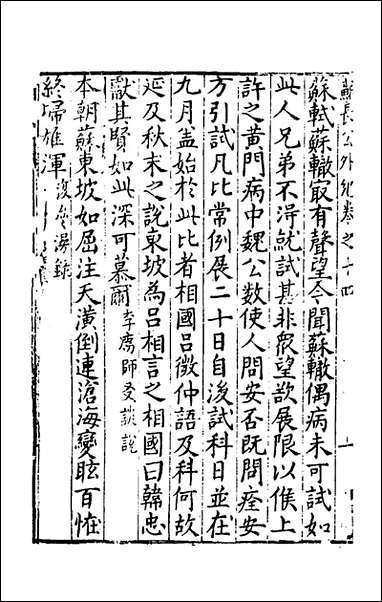 蘇長公外紀卷之十四
蘇軾蘇轍㝡有聲望今聞蘇轍偶病未可試如
此人兄弟不淂就試甚非衆望欲展限以俟上
許之黄門病中魏公數使人問安否既問痊安
方引試凡比常例展二十日自後試科日並在
九月盖始於此比者相國吕微仲語及科何故
延及秋末之說東坡為吕相言之相國曰韓忠
獻其賢如此深可慕爾李廌師友談說
本朝蘇東坡如屈注天潢倒連滄海變眩百恠
終歸雄渾